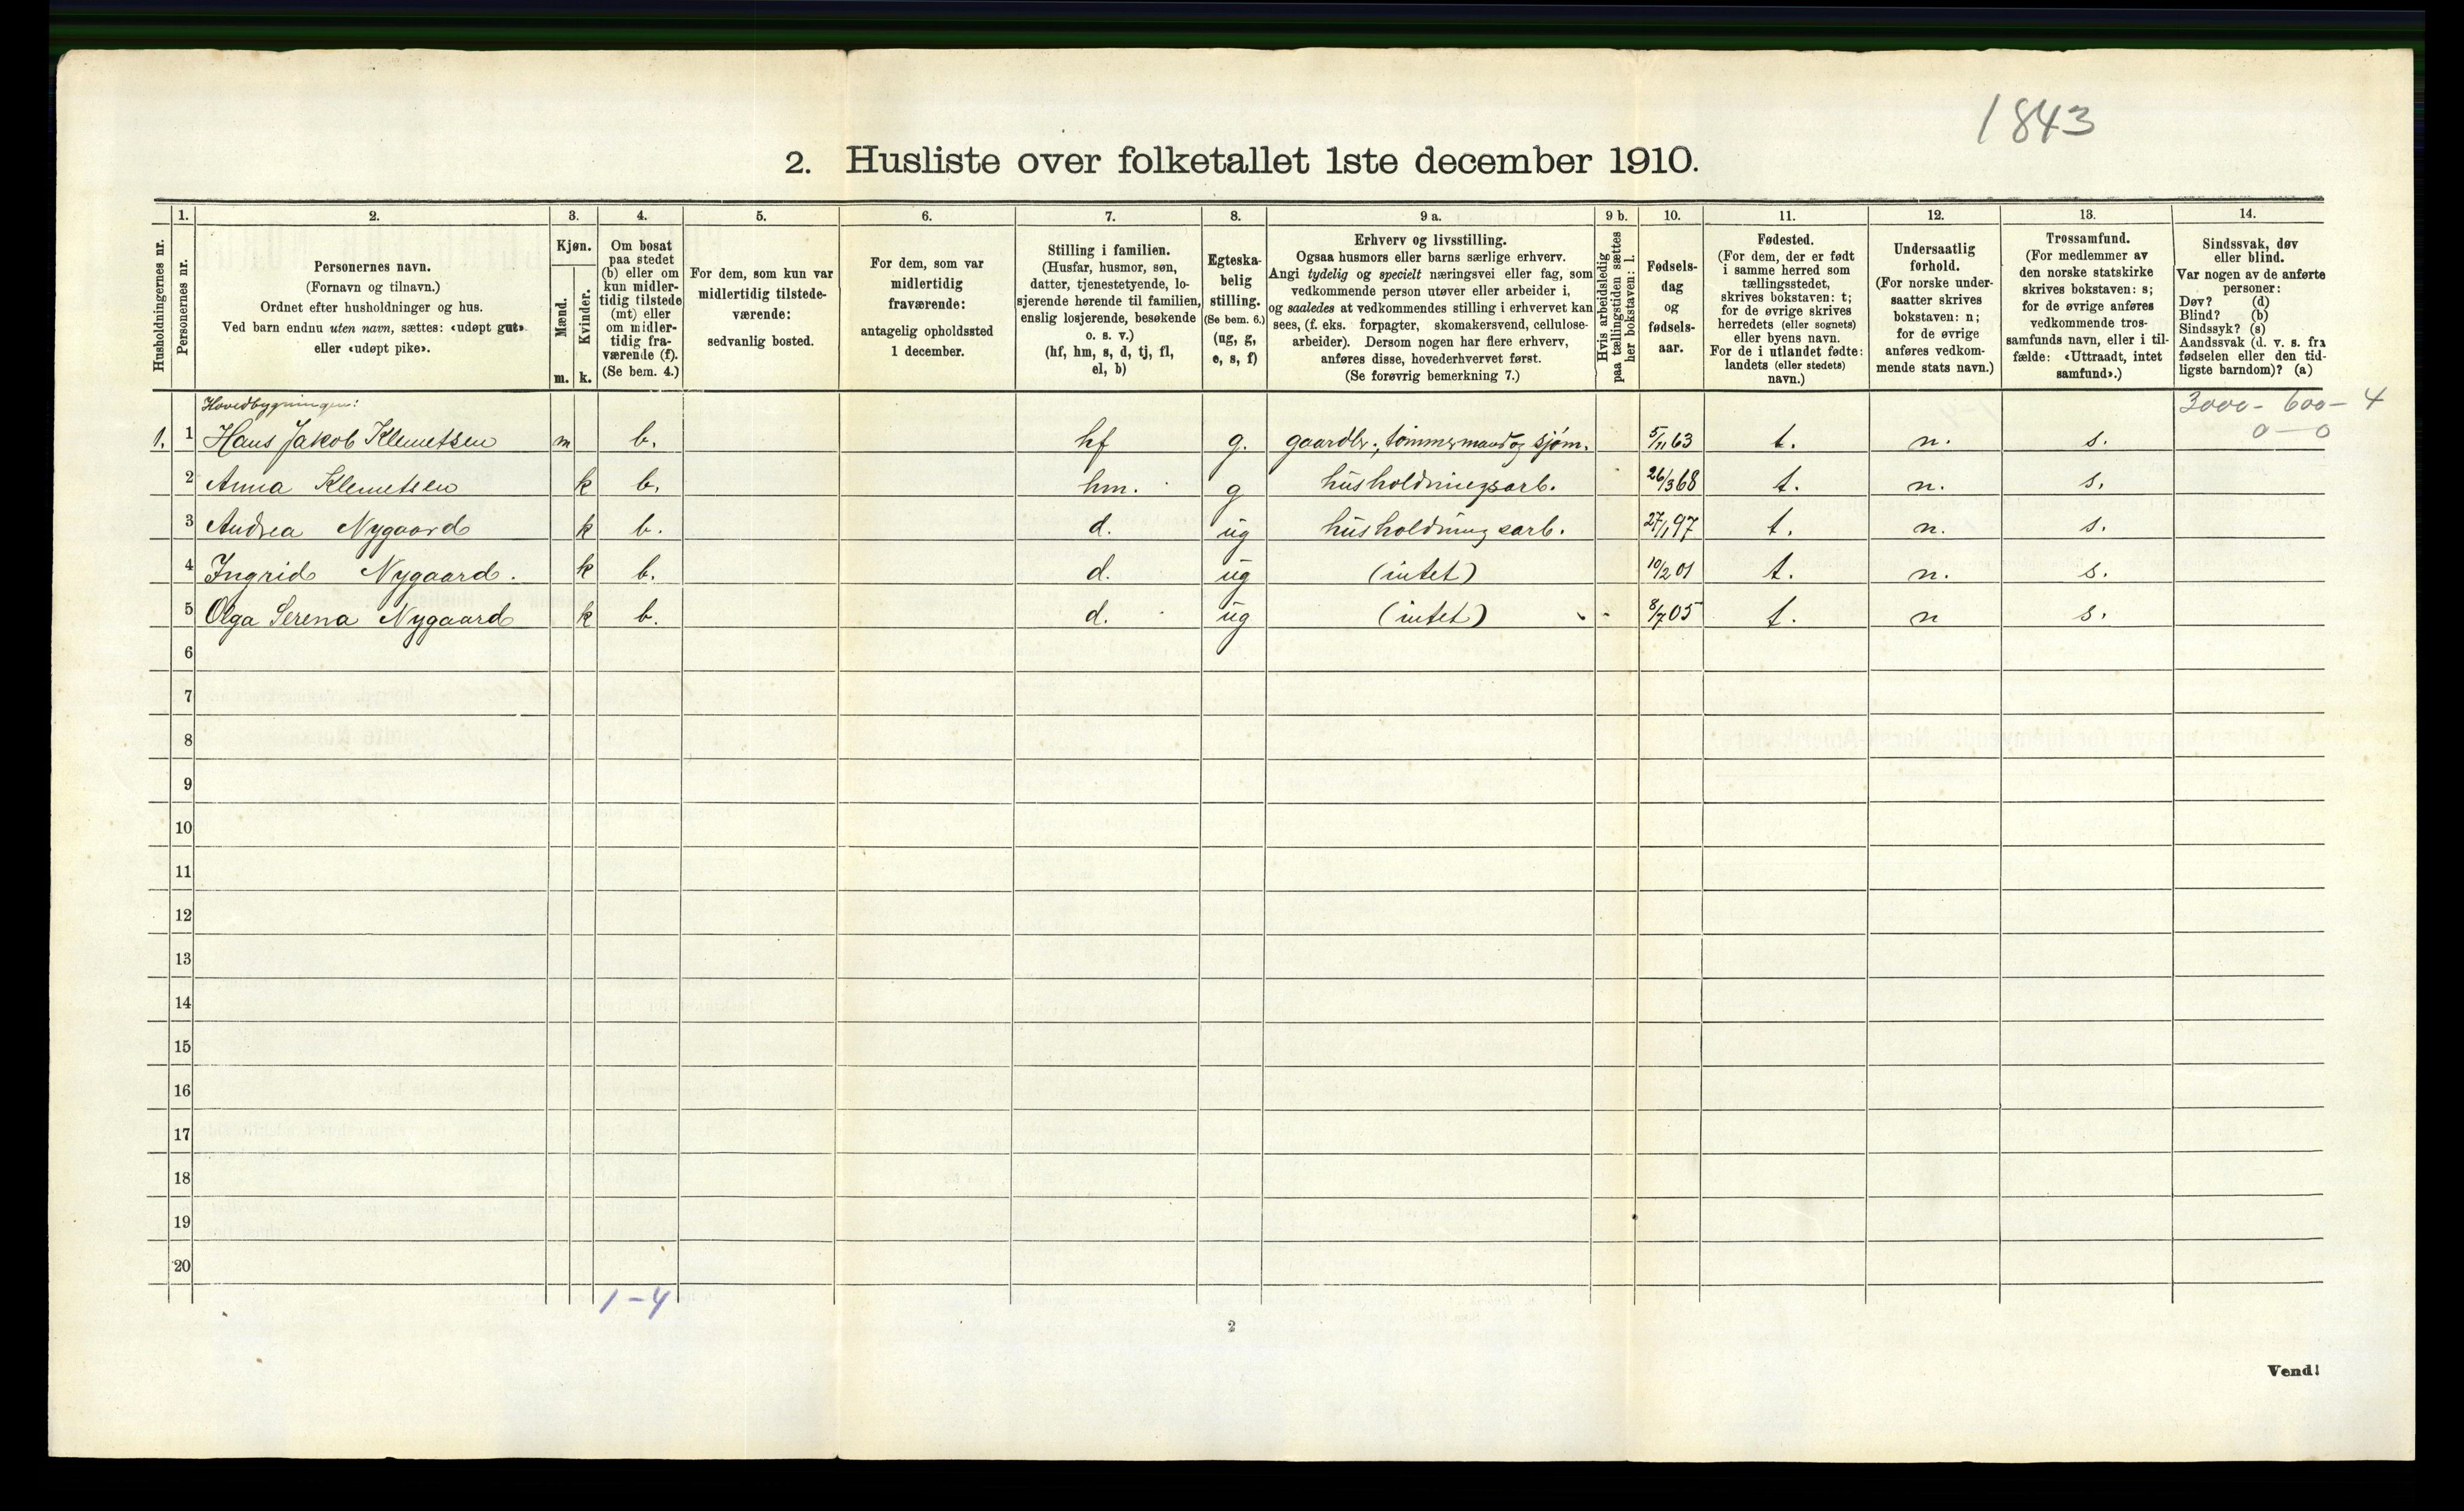 1843
2. Husliste over folketallet 1ste december 1910.
Husholdningernes nr.
1.
Personernes nr.
2.
Personernes navn.
(Fornavn og tilnavn.)
Ordnet efter husholdninger og hus.
Ved barn endnu uten navn, sættes: «udøpt gut»
eller «udøpt pike».
3.
Kjøn.
Mænd.
m.
Kvinder.
k.
4.
Om bosat
paa stedet
(b) eller om
kun midler-
tidig tilstede
(mt) eller
om midler-
tidig fra-
værende (f).
(Se bem. 4.)
5.
For dem, som kun var
midlertidig tilstede-
værende:
sedvanlig bosted.
6.
For dem, som var
midlertidig
fraværende:
antagelig opholdssted
1 december.
7.
Stilling i familien.
(Husfar, husmor, søn,
datter, tjenestetyende, lo-
sjerende hørende til familien,
enslig losjerende, besøkende
o. s. v.)
(hf, hm, s, d, tj, fl,
el, b)
8.
Egteska-
belig
stilling.
(Se bem. 6.)
(ug, g,
e, s, f)
9 a.
Erhverv og livsstilling.
Ogsaa husmors eller barns særlige erhverv.
Angi tydelig og specielt næringsvei eller fag, som
vedkommende person utøver eller arbeider i,
og saaledes at vedkommendes stilling i erhvervet kan
sees, (f. eks. forpagter, skomakersvend, cellulose-
arbeider). Dersom nogen har flere erhverv,
anføres disse, hovederhvervet først.
(Se forøvrig bemerkning 7.)
9 b.
Hvis arbeidsledig
paa tællingstiden sættes
her bokstaven: l.
10.
Fødsels-
dag
og
fødsels-
aar.
11.
Fødested.
(For dem, der er født
i samme herred som
tællingsstedet,
skrives bokstaven: t;
for de øvrige skrives
herredets (eller sognets)
eller byens navn.
For de i utlandet fødte:
landets (eller stedets)
navn.)
12.
Undersaatlig
forhold.
(For norske under-
saatter skrives
bokstaven: n;
for de øvrige
anføres vedkom-
mende stats navn.)
13.
Trossamfund.
(For medlemmer av
den norske statskirke
skrives bokstaven: s;
for de øvrige anføres
vedkommende tros-
samfunds navn, eller i til-
fælde: «Uttraadt, intet
samfund».)
14.
Sindssvak, døv
eller blind.
Var nogen av de anførte
personer:
Døv? (d)
Blind? (b)
Sindssyk? (s)
Aandssvak (d. v. s. fra
fødselen eller den tid-
ligste barndom)? (a)
Hovedbygningen:
3000- 600- 4
0-0
1. 1 Hans Jakob Klemetsen m b. hf g. gaardbr., tømmermand og sjøm. 5/11 63 t. n. s.
2 Anna Klemetsen k b. hm. g husholdningsarb. 26/3 68 t. n. s.
3 Andrea Nygaard k b. d. ug husholdningsarb. 27/1 97 t. n. s.
4 Ingrid Nygaard. k b. d. ug (intet) 10/2 01 t. n. s.
5 Olga Serena Nygaard k b. d. ug (intet) 8/7 05 t. n s.
6
7
8
9
10
11
12
13
14
15
16
17
18
19
20
1-4
2
Vend!